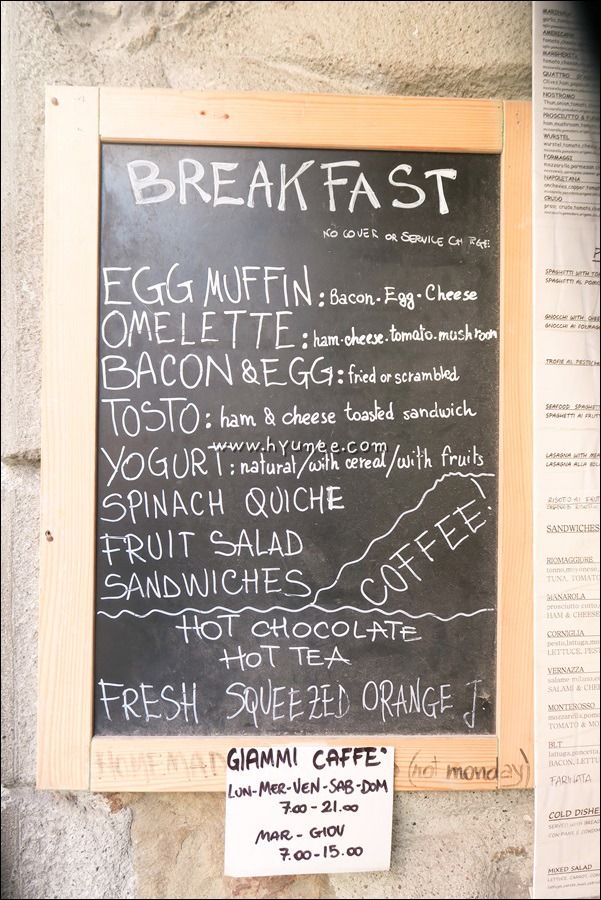 BREAKFAST
NO COVER OR SERVICE CHARGE
EGG MUFFIN: Bacon. Egg. Cheese
OMELETTE: ham.cheese.tomato.mushroom
BACON & EGG: fried or scrambled
TOSTO: ham & cheese toasted sandwich
www.hyunee.com
YOGURT: natural/with cereal/with fruits
SPINACH QUICHE
FRUIT SALAD
SANDWICHES
COFFEE!
HOT CHOCOLATE
HOT TEA
FRESH SQUEEZED ORANGE J
(not monday)
GIAMMI CAFFE'
LUN-MER-VEN-SAB-DOM
7.00-21.00
MAR-GIOV
7.00-15.00
AMERICANA
MARGHERITA
QUATTRO
NOSTROMO
PROSCIUTTO &
WURSTEL
FORMAGGI
NAPOLETANA
CRUDO
SPAGHETTI WITH
SPAGHETTI AL
GNOCCHI WITH
GNOCCHI AI
TROFIE AL PESTO
SEAFOOD
SPAGHETTI AI
LASAGNA WITH
LASAGNA ALLA
SANDWICHES
RIOMAGGIORE
TUNA, TOMATO
MANAROLA
prosciutto cotto,
HAM & CHEESE
CORNIGLIA
pesto,lattuga,
LETTUCE,
VERNAZZA
salame milano,
SALAMI &
MONTEROSSO
mozzarella,
TOMATO &
BLT
BACON,
FARINATA
COLD
SERVED WITH
MIXED SALAD